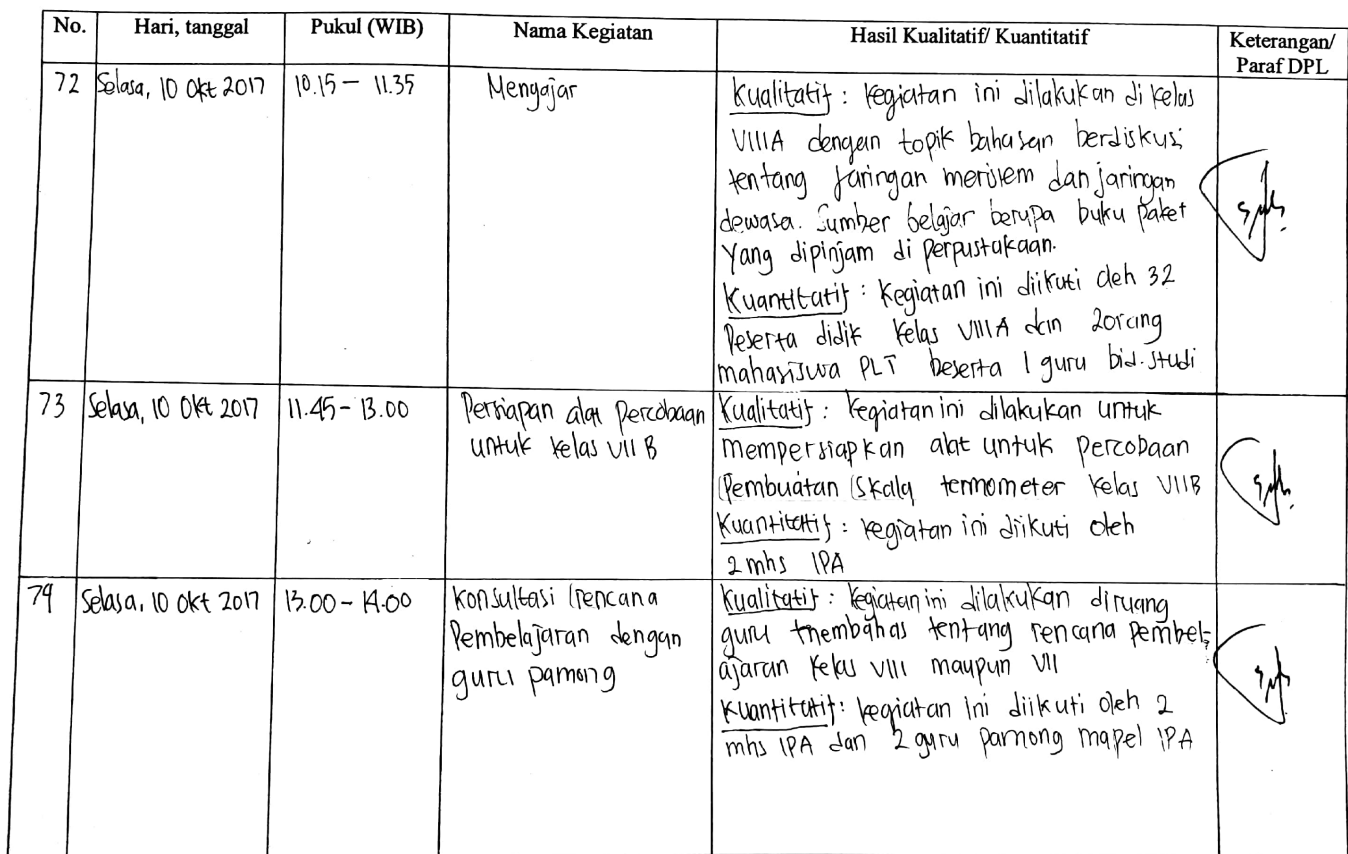 No. Hari, tanggal Pukul (WIB) Nama Kegiatan Hasil Kualitatif/ Kuantitatif Keterangan/
Paraf DPL
72 Selasa, 10 Okt 2017 10.15 – 11.35 Mengajar Kualitatif : Kegiatan ini dilakukan di kelas
VIIIA dengan topik bahasan berdiskusi
tentang jaringan meristem dan jaringan
dewasa. Sumber belajar berupa buku paket
yang dipinjam di perpustakaan.
Kuantitatif : Kegiatan ini diikuti oleh 32
Peserta didik kelas VIIIA dan 2 orang
mahasiswa PLT beserta 1 guru bid. studi
73 Selasa, 10 Okt 2017 11.45 – 13.00 Persiapan alat Percobaan Kualitatif : Kegiatan ini dilakukan untuk
untuk kelas VII B mempersiapkan alat untuk percobaan
Pembuatan Skala termometer kelas VIIB
Kuantitatif : kegiatan ini diikuti oleh
2 mhs IPA
74 Selasa, 10 Okt 2017 13.00 – 14.00 Konsultasi rencana Kualitatif : kegiatan ini dilakukan diruang
Pembelajaran dengan guru membahas tentang rencana pembel-
guru pamong ajaran kelas VIII maupun VII
Kuantitatif : kegiatan ini diikuti oleh 2
mhs IPA dan 2 guru pamong mapel IPA